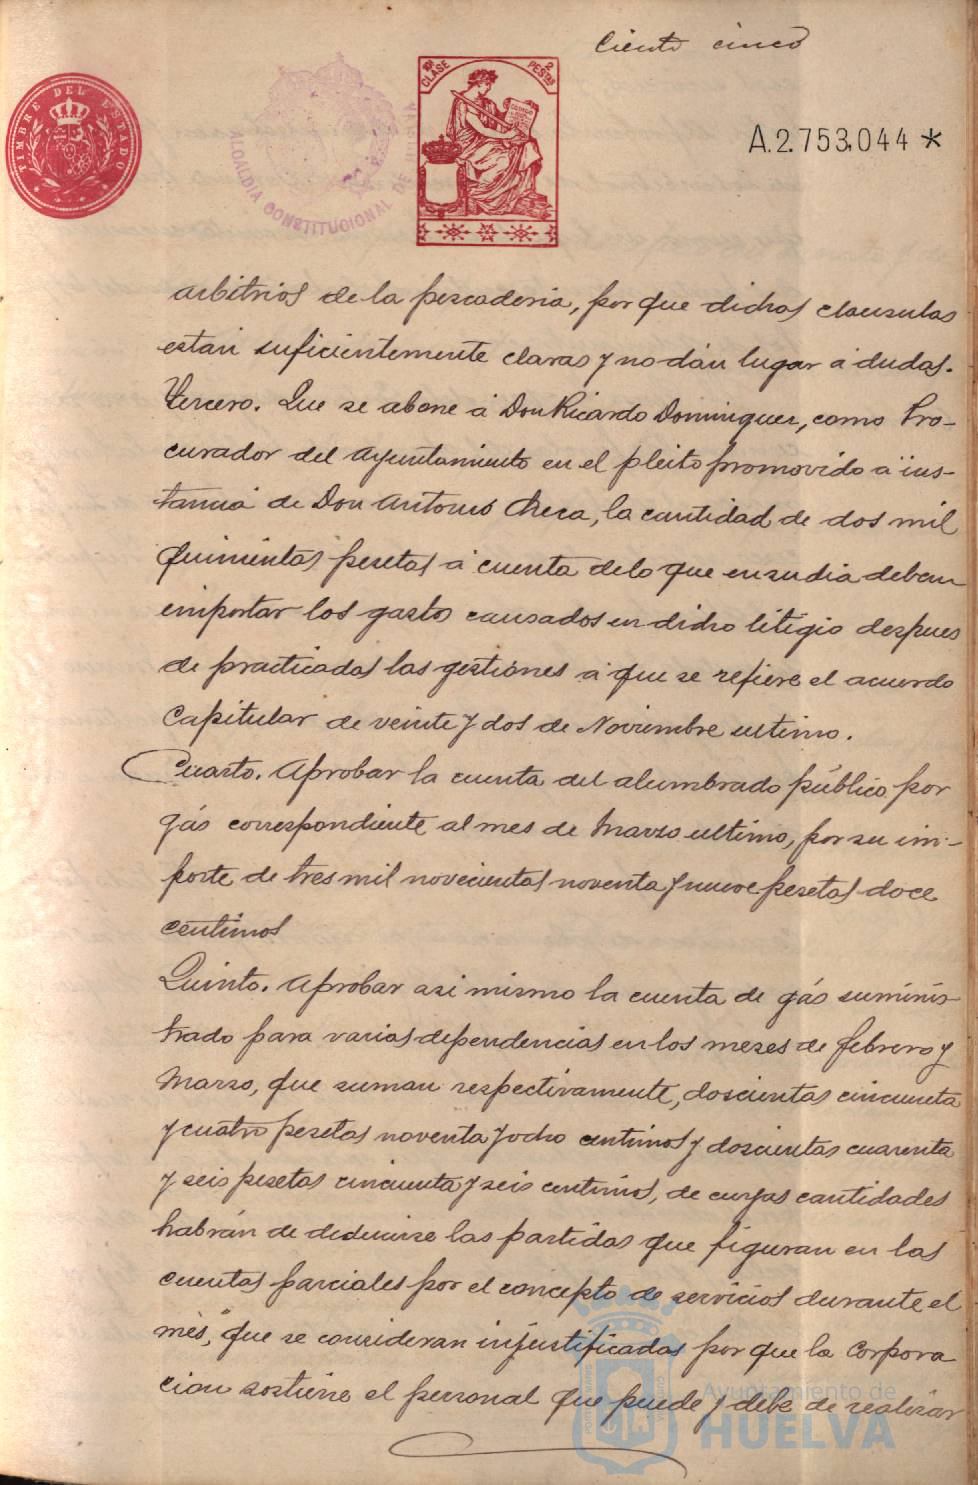 Ciento cinco
TIMBRE DEL ESTADO
ALCALDIA CONSTITUCIONAL DE
10ª CLASE
2 PESTAS
A.2.753.044 *
arbitrios de la pescaderia, por que dichas clausulas
están suficientemente claras y no dán lugar á dudas.
Tercero. Que se abone á Don Ricardo Dominguez, como Pro-
curador del Ayuntamiento en el pleito promovido a ins-
tancia de Don Antonio Checa, la cantidad de dos mil
quinientas pesetas á cuenta de lo que en su dia deban
importar los gasto causados en dicho litigio despues
de practicadas las gestiónes á que se refiere el acuerdo
Capitular de veinte y dos de Noviembre ultimo.
Cuarto. Aprobar la cuenta del alumbrado público por
gás correspondiente al mes de Marzo ultimo, por su im-
porte de tres mil novecientas noventa y nueve pesetas doce
centimos
Quinto. Aprobar asi mismo la cuenta de gás suminis-
trado para varias dependencias en los meses de febrero y
Marzo, que suman respectivamente, doscientas cincuenta
y cuatro pesetas noventa y ocho centimos y doscientas cuarenta
y seis pesetas cincuenta y seis centimos, de cuyas cantidades
habrán de deducirse las partidas que figuran en las
cuentas parciales por el concepto de servicios durante el
mes, que se consideran injustificadas por que la Corpora
cion sostiene el personal que puede y debe de realizar
Ayuntamiento de
HUELVA